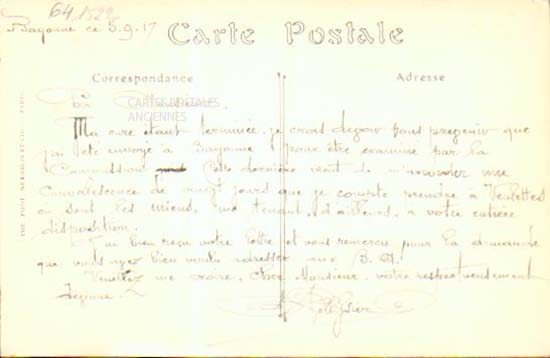 64/152
Bayonne ce 5-9-17
Carte Postale
Correspondance
Adresse
CARTES POSTALES
ANCIENNES
Ma cure étant terminée, je crois devoir vous que
j'ai été envoyé à Bayonne pour être examiné par la
Commission Cette dernière vient de une
convalescence de vingt jours que je compte prendre à Veulettes
où sont les miens, me tenant, d'ailleurs, à votre entière
disposition.
J'ai bien reçu votre lettre et vous remercie pour la demande
que vous avez bien voulu adresser aux
Veuillez me croire, Cher Monsieur, votre respectueusement